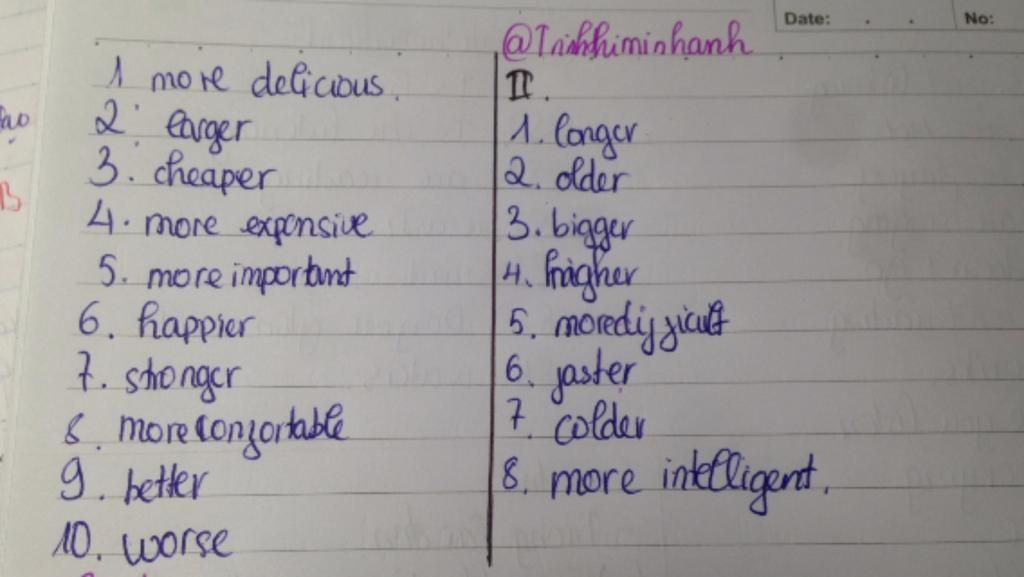 Date: . . No:
@Trinhthiminhanh
1 more delicious.
2. larger
3. cheaper
4. more expensive
5. more important
6. happier
7. stronger
8. more comfortable
9. better
10. worse
II.
1. longer
2. older
3. bigger
4. higher
5. more difficult
6. faster
7. colder
8. more intelligent.